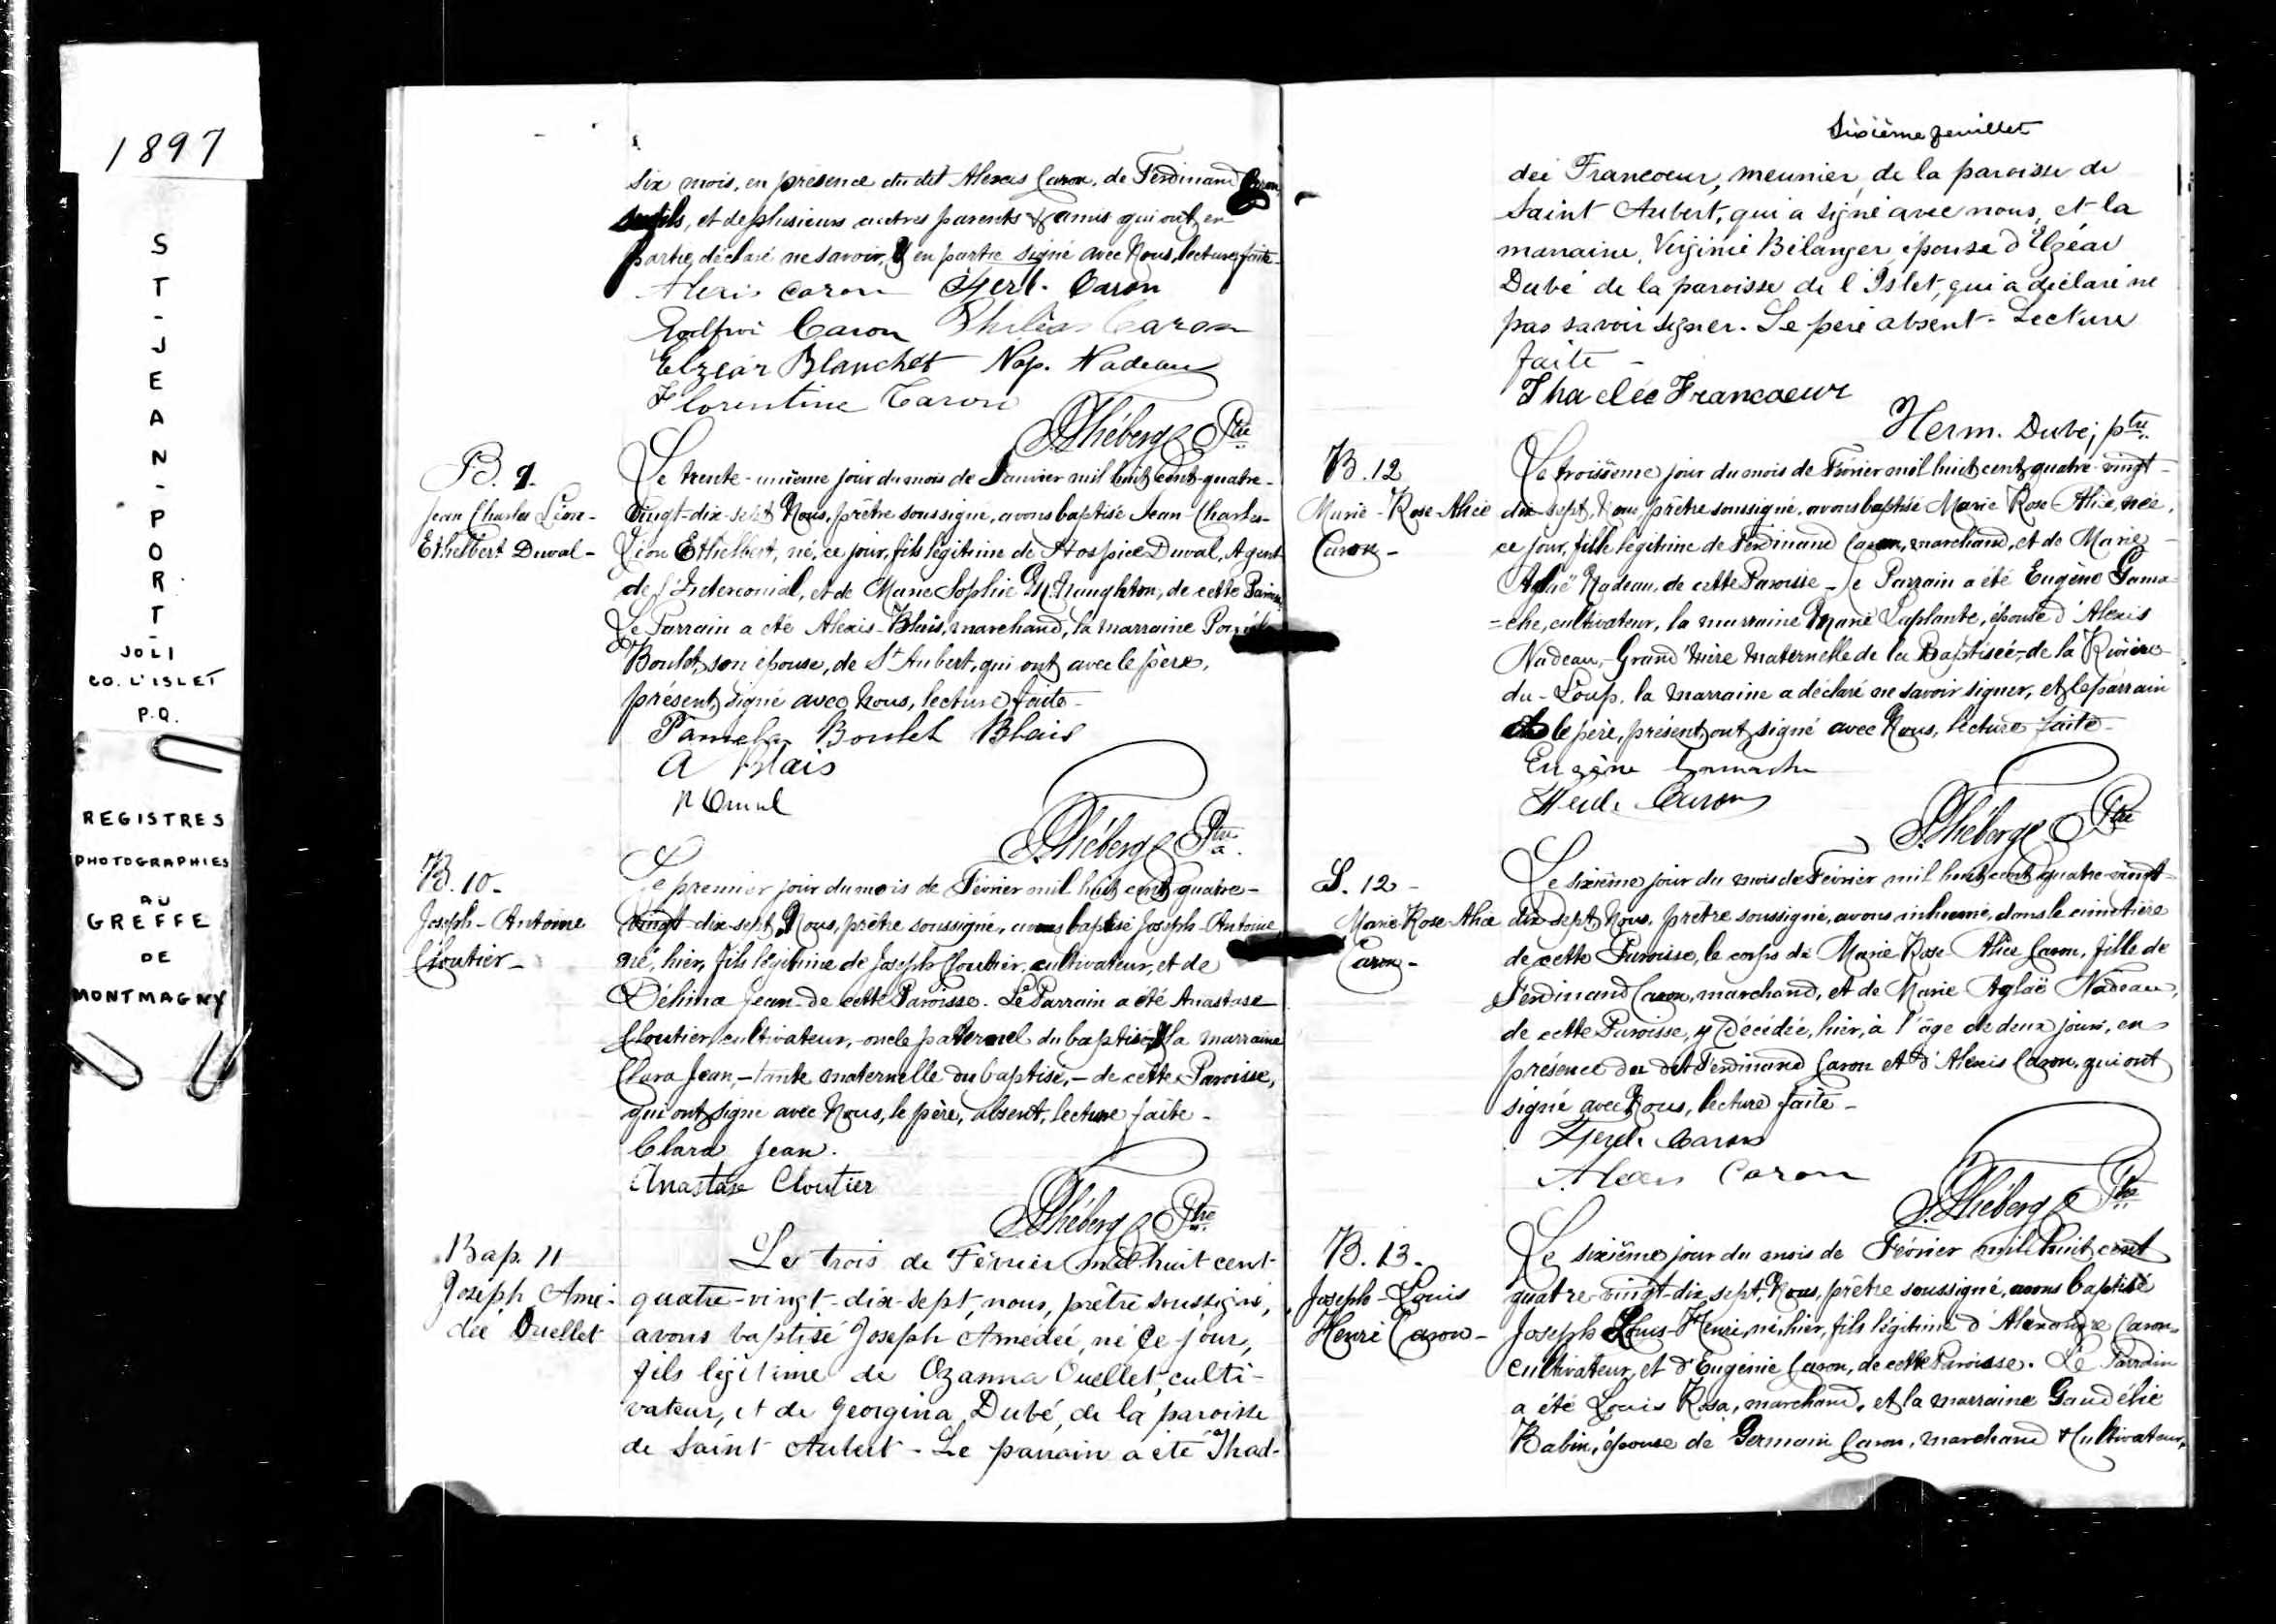 1897
S
T
-
J
E
A
N
-
P
O
R
T
-
JOLI
CO. L'ISLET
P.Q.
REGISTRES
PHOTOGRAPHIES
AU
GREFFE
DE
MONTMAGNY
six mois, en présence du dit Alexis Caron, de Ferdinand Caron,
son fils, et de plusieurs autres parents & amis qui ont, en
partie, déclaré ne savoir, & en partie signé avec Nous, lecture faite-
Alexis Caron Ferd. Caron
Godfroi Caron Philéas Caron
Elzéar Blanchet Nap. Nadeau
Florentine Caron
Théberge Ptre
B. 9.
Jean Charles Léon-
Ethelbert Duval-
Le trente-unième jour du mois de Janvier mil huit cent-quatre-
vingt-dix-sept Nous, prêtre soussigné, avons baptisé Jean-Charles-
Léon Ethelbert, né, ce jour, fils légitime de Hospice Duval, Agent
de l'Intercomial, et de Marie Sophie McNaughton, de cette Paroisse,
Le Parrain a été Alexis-Blais, marchand, la marraine
Boulet, son épouse, de St Aubert, qui ont avec le père,
présent, signé avec Nous, lecture faite-
Pamela Boulet Blais
A Blais
H Duval
Théberge Ptre
B. 10-
Joseph-Antoine
Cloutier-
Le premier jour du mois de Février mil huit cent quatre-
vingt-dix-sept, Nous, prêtre soussigné, avons baptisé Joseph-Antoine
né, hier, fils légitime de Joseph Cloutier, cultivateur, et de
Délima Jean de cette Paroisse. Le Parrain a été Anastase
Cloutier, cultivateur, -oncle paternel du baptisé, & la marraine
Clara Jean, -tante maternelle du baptisé, -de cette Paroisse,
qui ont signé avec Nous, le père, absent, lecture faite-
Clara Jean.
Anastase Cloutier
Théberge Ptre
Bap. 11
Joseph Amé-
dée Ouellet
Le trois de Février mil huit cent-
quatre-vingt-dix-sept, nous, prêtre soussigné,
avons baptisé Joseph Amédée, né ce jour,
fils légitime de Ozanna Ouellet, culti-
vateur, et de Georgina Dubé, de la paroisse
de Saint Aubert - Le parrain a été Thad-
Sixième feuillet
dée Francoeur, meunier, de la paroisse de
Saint Aubert, qui a signé avec nous, et la
marraine, Virginie Bélanger, épouse d'Elzéar
Dubé de la paroisse de l'Islet, qui a déclaré ne
pas savoir signer. Le père absent- Lecture
faite-
Thadée Francoeur
Herm. Dubé, ptre
B. 12
Marie-Rose-Alice
Caron-
Le troisième jour du mois de Février mil huit cent quatre-vingt-
dix-sept, Nous, prêtre soussigné, avons baptisé Marie Rose-Alice, née,
ce jour, fille légitime de Ferdinand Caron, marchand, et de Marie-
Aglaë Nadeau, de cette Paroisse- Le Parrain a été Eugène Gama-
=che, cultivateur, la marraine Marie Laplante, épouse d'Alexis
Nadeau,-Grand'mère maternelle de la Baptisée,-de la Rivière-
du-Loup, la marraine a déclaré ne savoir signer, et le parrain
et le père, présent, ont signé avec Nous, lecture faite-
Eugène Gamache
Ferd. Caron
Théberge Ptre
S. 12-
Marie Rose-Alice
Caron-
Le sixième jour du mois de Février mil huit cent quatre-vingt-
dix-sept, Nous, prêtre soussigné, avons inhumé, dans le cimetière
de cette Paroisse, le corps de Marie-Rose-Alice Caron, fille de
Ferdinand Caron, marchand, et de Marie Aglaë Nadeau,
de cette Paroisse, y Décédée, hier, à l'âge de deux jours, en
présence du dit Ferdinand Caron et d'Alexis Caron, qui ont
signé avec Nous, lecture faite-
Ferd. Caron
Alexis Caron
Théberge Ptre
B. 13-
Joseph-Louis
Henri Caron-
Le sixième jour du mois de Février mil huit cent
quatre-vingt-dix-sept, Nous, prêtre soussigné, avons baptisé
Joseph Louis-Henri, né, hier, fils légitime d'Alexandre Caron,
cultivateur, et d'Eugénie Caron, de cette Paroisse. Le Parrain
a été Louis Rosa, marchand, et la marraine Gaudélie
Babin, épouse de Germain Caron, marchand & Cultivateur,